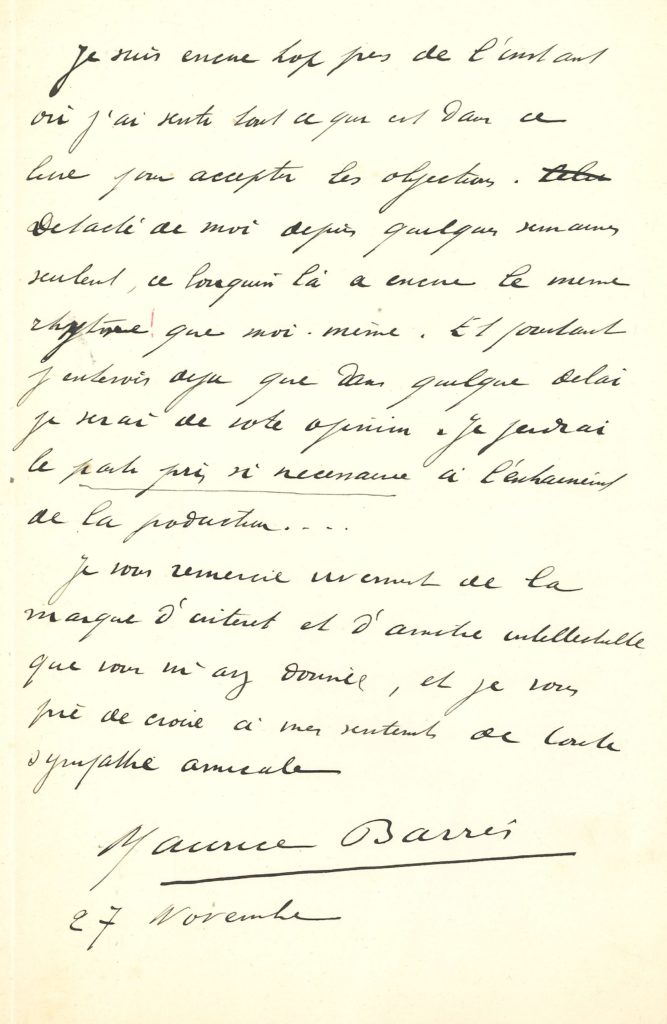 Je suis encore trop près de l'instant
où j'ai senti tout ce qui est dans ce
livre pour accepter les objections.
Detaché de moi depuis quelques semaines
seulent, ce bouquin là a encore le meme
rhytme que moi-même. Et pourtant
j'entrevois deja que dans quelque delai
je serai de votre opinion. Je perdrai
le parti pris si necessaire à l'acharnement
de la production....
Je vous remercie vivement de la
marque d'interet et d'amitie intellectuelle
que vous m'avez donnée, et je vous
prie de croire à mes sentiments de toute
sympathie amicale
Maurice Barrès
27 Novembre